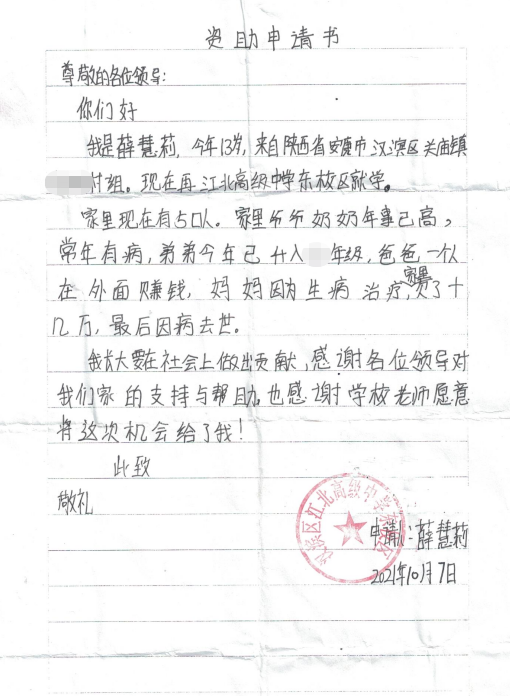 资助申请书
尊敬的各位领导:
你们好
我是薛慧莉,今年13岁,来自陕西省安康市汉滨区关庙镇
村组。现在再江北高级中学东校区就学。
家里现在有5口人。家里爷爷奶奶年事已高,
常年有病,弟弟今年已升入 年级,爸爸一个人
在外面赚钱,妈妈因为生病治疗,家里花了十
几万,最后因病去世。
我长大要在社会上做出贡献,感谢各位领导对
我们家的支持与帮助,也感谢学校老师愿意
将这次机会给了我!
此致
敬礼
汉滨区江北高级中学东校区
申请人:薛慧莉
2021年10月7日